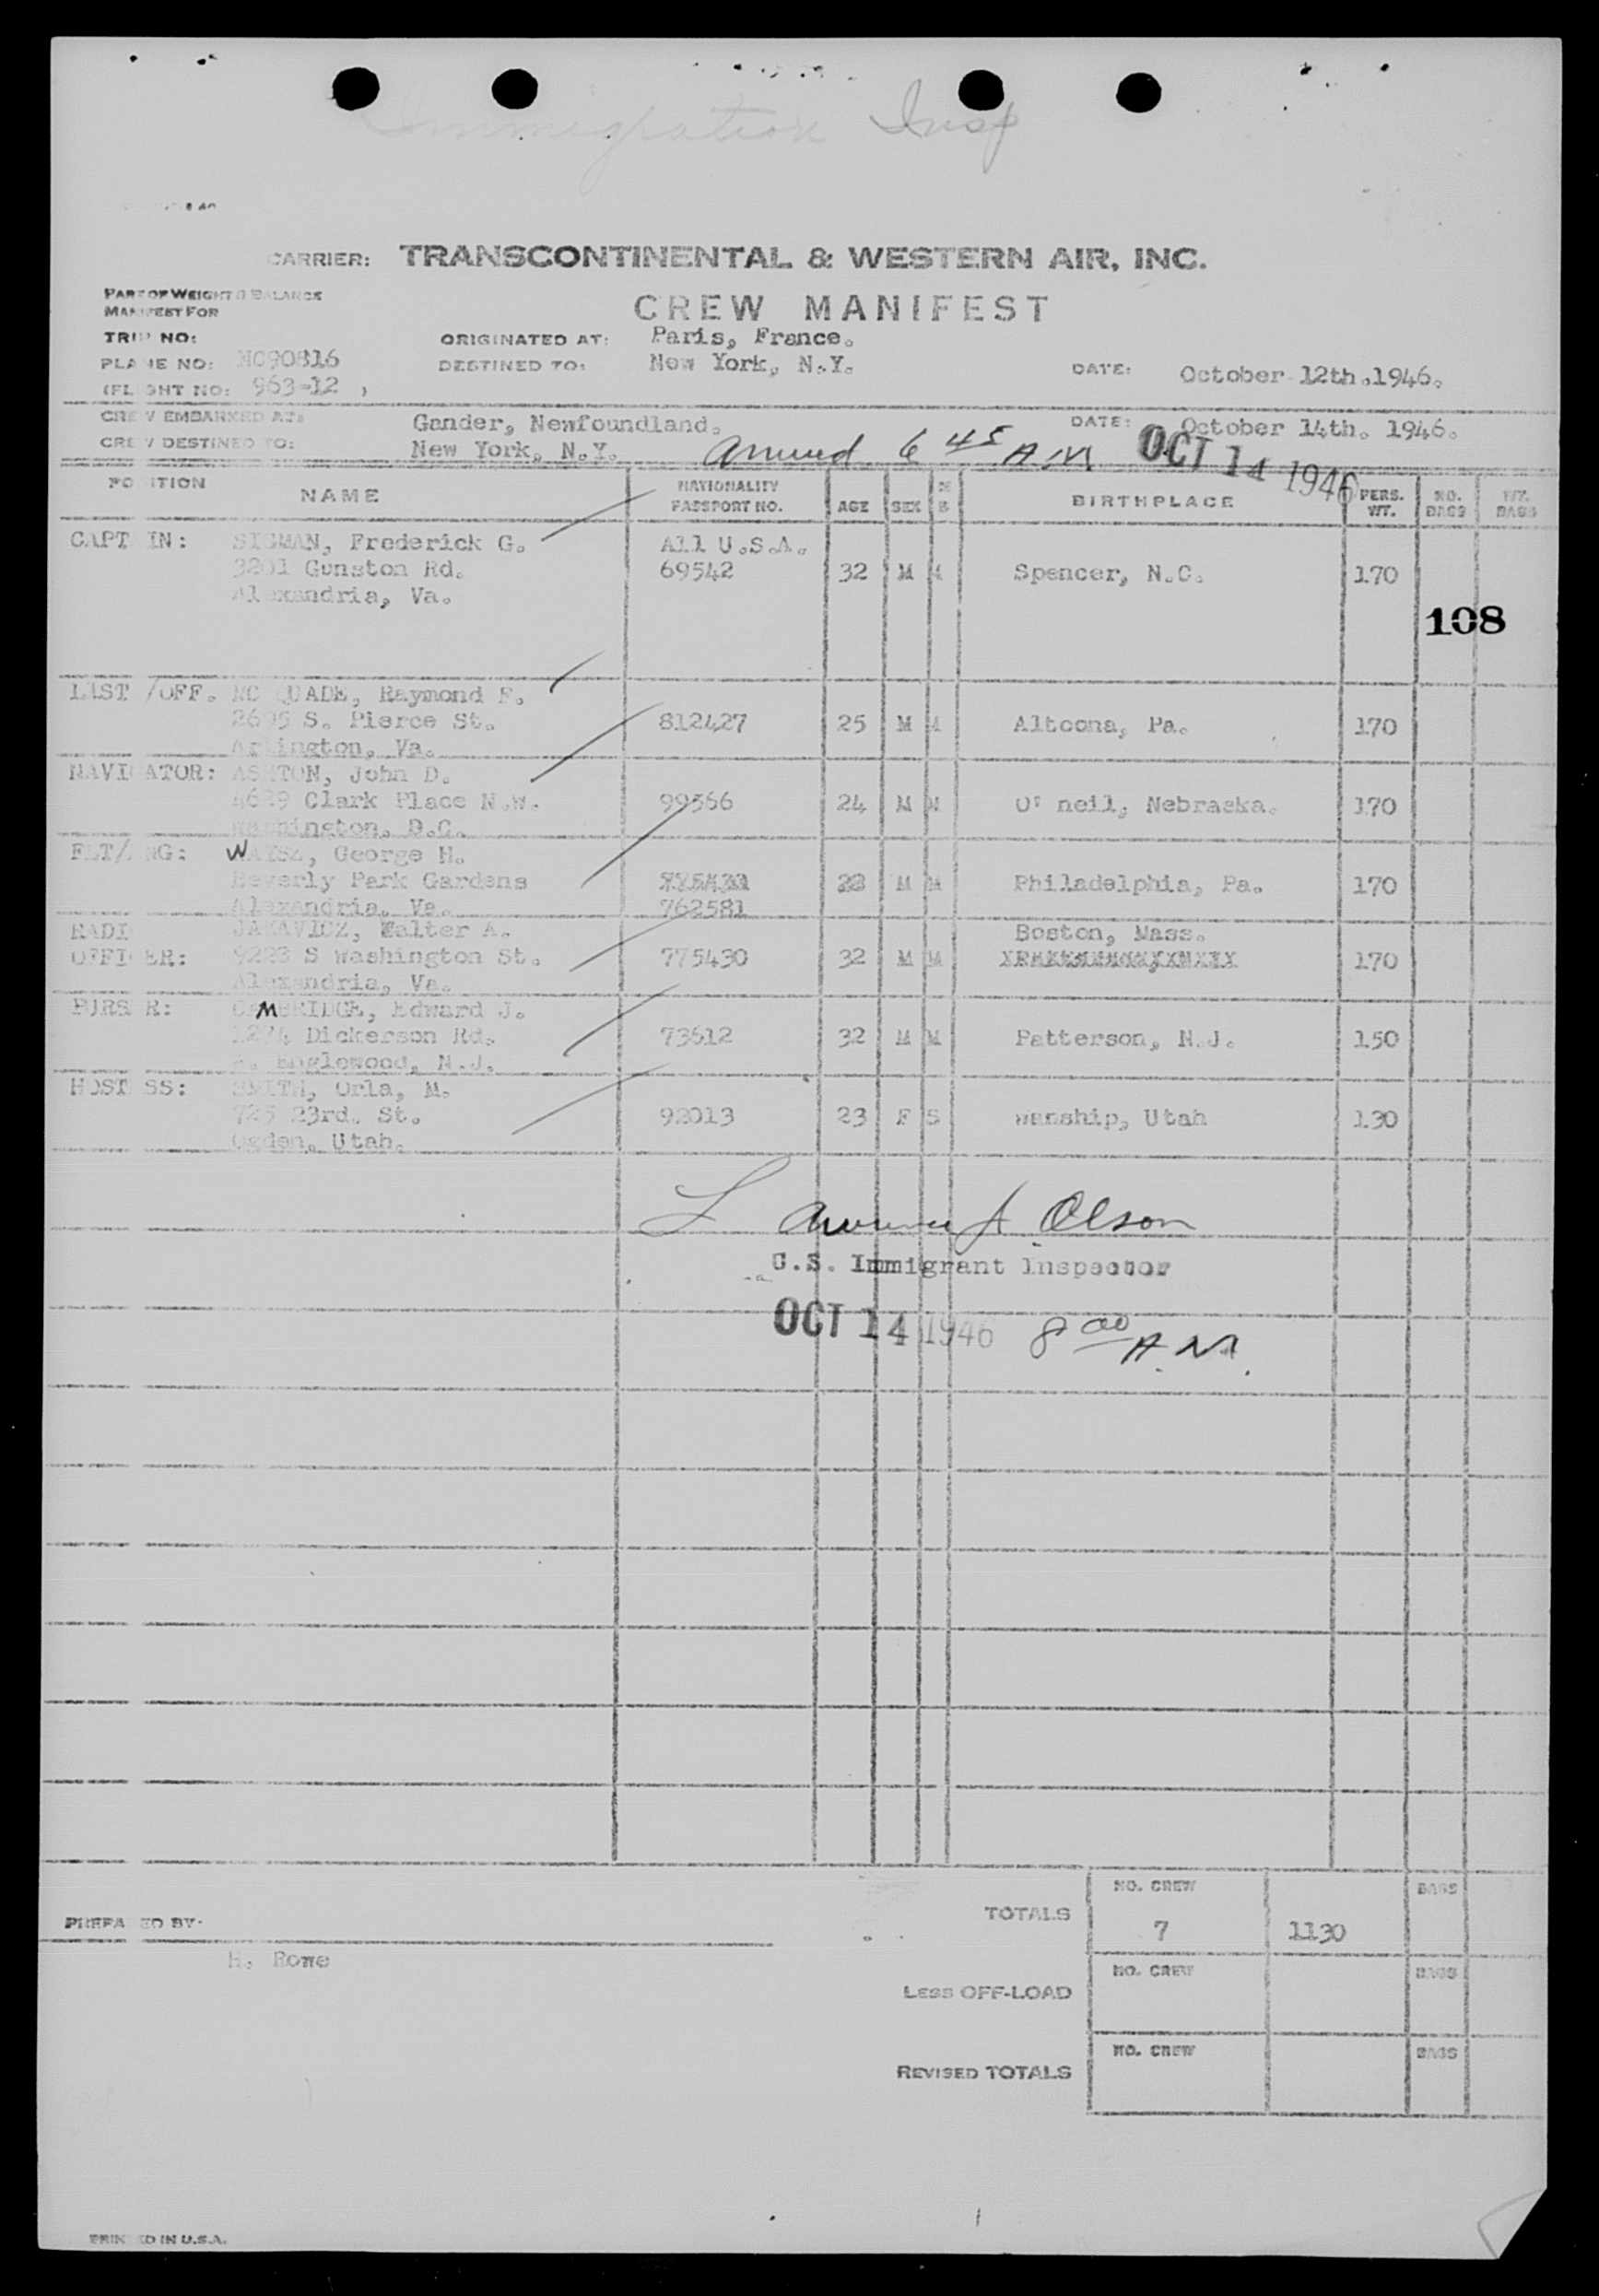 Immigration Insp
CARRIER: TRANSCONTINENTAL & WESTERN AIR, INC.
PART OF WEIGHT & BALANCE
MANIFEST FOR
CREW MANIFEST
TRIP NO: ORIGINATED AT: Paris, France.
PLANE NO: NC90816 DESTINED TO: New York, N.Y. DATE: October 12th.1946.
(FLIGHT NO: 963-12 )
CREW EMBARKED AT: Gander, Newfoundland. DATE: October 14th. 1946.
CREW DESTINED TO: New York, N.Y. Arrived 6 45 A.M OCT 14 1946
POSITION NAME NATIONALITY PASSPORT NO. AGE SEX M S BIRTHPLACE PERS. WT. NO. BAGS WT. BAGS
CAPT IN: SIGMAN, Frederick G. All U.S.A.
3201 Gunston Rd. 69542 32 M M Spencer, N.C. 170
Alexandria, Va.
108
/OFF. MC QUADE, Raymond F.
S. Pierce St. 812427 25 M M Altoona, Pa. 170
Arlington, Va.
NAVIGATOR: ASHTON, John D.
Clark Place N.W. 99566 24 M M O' neil, Nebraska. 170
Washington, D.C.
FLT/ NG: George H.
Beverly Park Gardens M M Philadelphia, Pa. 170
Alexandria, Va. 762581
RADI JAKAVICZ, Walter A. Boston, Mass.
OFFICER: S Washington St. 775430 32 M M 170
Alexandria, Va.
PURSER: CAMBRIDGE, Edward J.
Dickerson Rd. 73612 32 M M Patterson, N.J. 150
Englewood, N.J.
HOSTESS: SMITH, Orla, M.
725 23rd. St. 92013 23 F S Wanship, Utah 130
Ogden, Utah.
Lawrence A Olson
U.S. Immigrant Inspector
OCT 14 1946 8 00 A.M.
NO. CREW BAGS
PREPARED BY: TOTALS 7 1130
H. Rowe
NO. CREW BAGS
LESS OFF-LOAD
NO. CREW BAGS
REVISED TOTALS
PRINTED IN U.S.A.